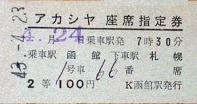 アカシヤ 座席指定券
4.月24日 乗車駅発 7時30分
乗車駅 函館 下車駅 札幌
号車 66 番席
2等 100円 K函館駅発行
43.-4.23